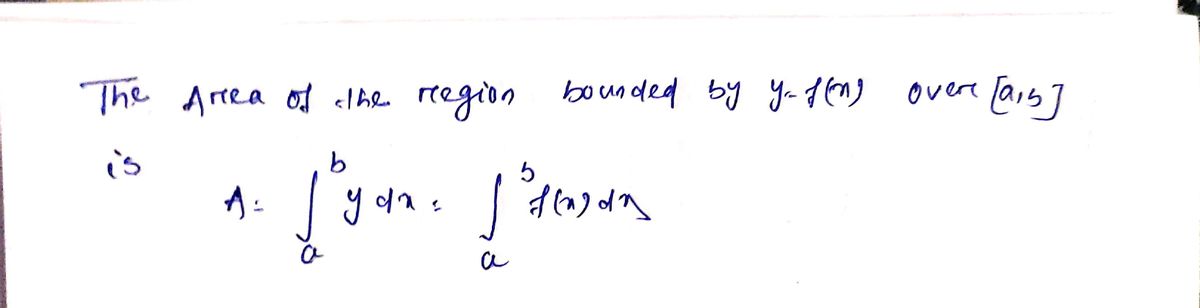 The Area of the region bounded by y = f(x) over [a,b]
is
A = ∫_a^b y dx = ∫_a^b f(x) dx